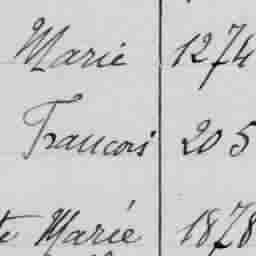 Marie 1274
Francois 205
te Marie 1878